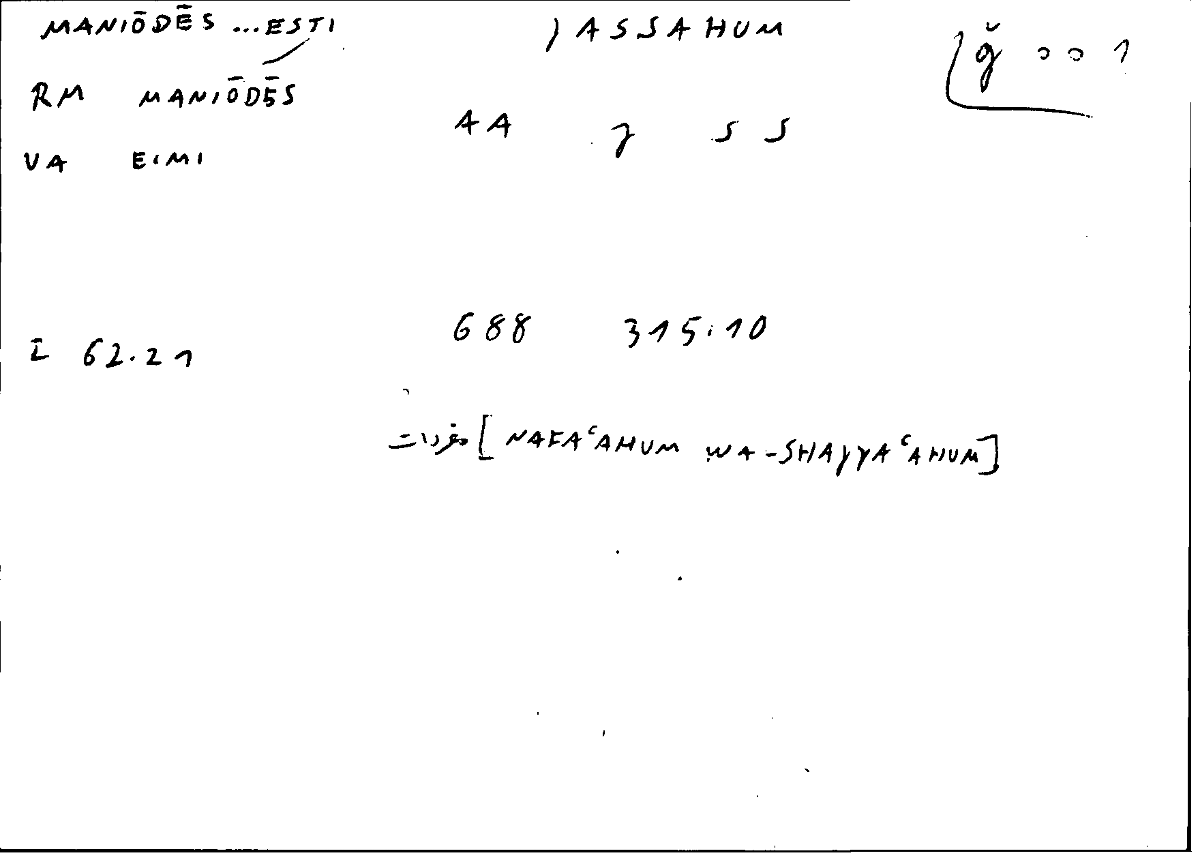 MANIŌDĒS ...ESTI
RM MANIŌDĒS
VA EIMI
I 62.21
JASSAHUM
AA J SS
688 315.10
مفردات [NAFAʿAHUM WA-SHAYYAʿAHUM]
ǧ 001